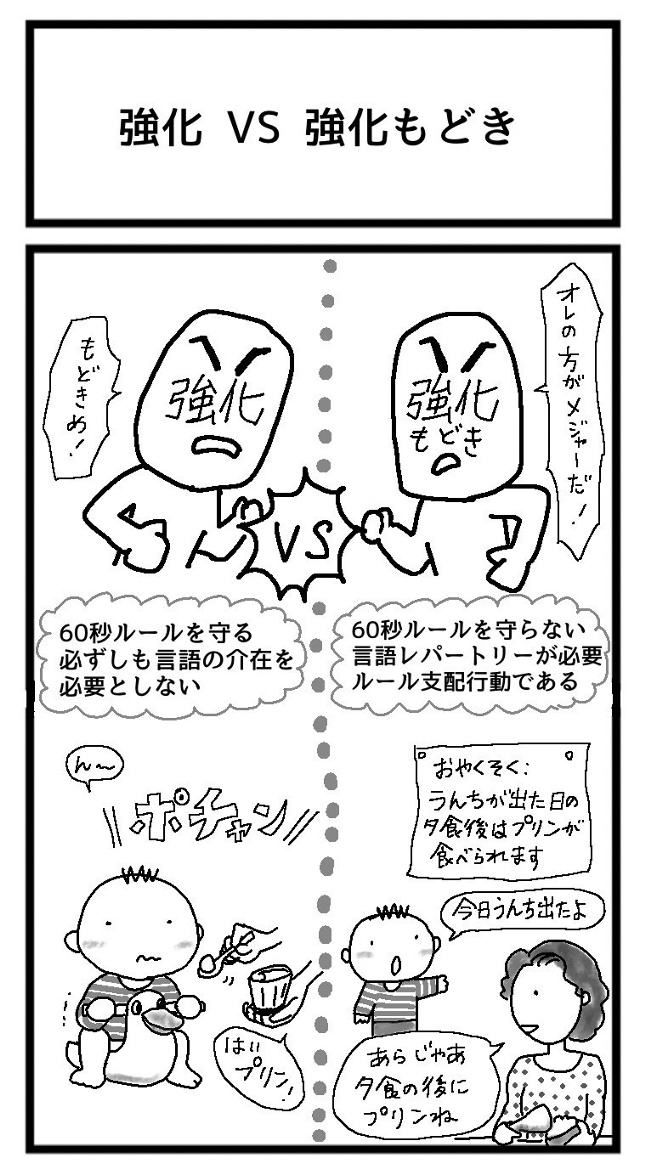 強化 VS 強化もどき
もどきめ!
強化
VS
強化
もどき
オレの方がメジャーだ!
60秒ルールを守る
必ずしも言語の介在を
必要としない
60秒ルールを守らない
言語レパートリーが必要
ルール支配行動である
ん〜
ポチャン
はい
プリン!
おやくそく:
うんちが出た日の
夕食後はプリンが
食べられます
今日うんち出たよ
あらじゃあ
夕食の後に
プリンね